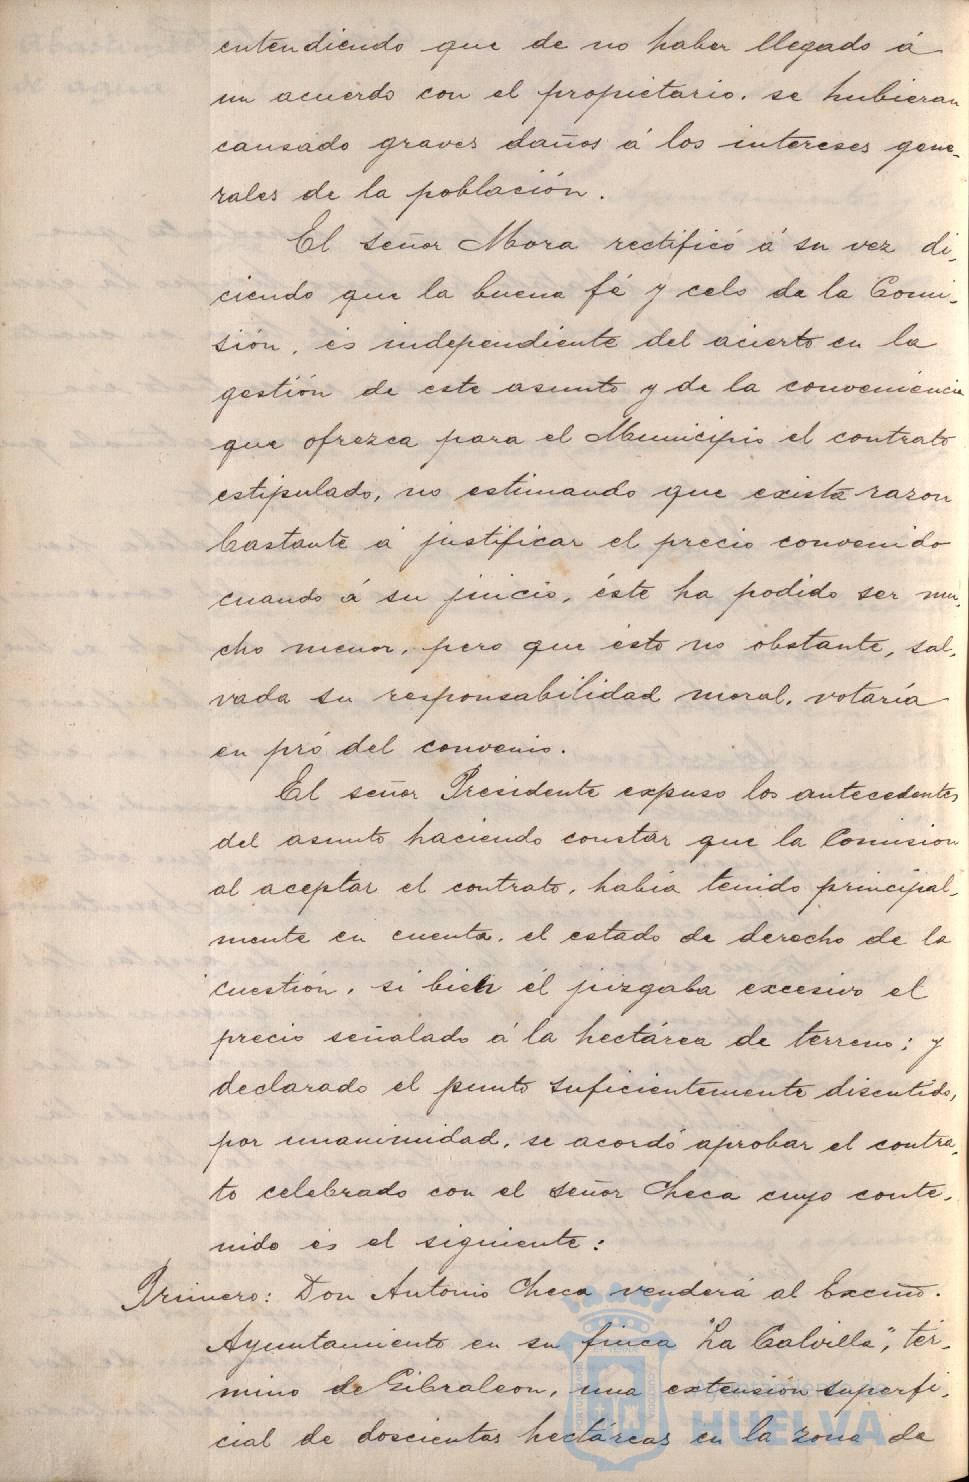 entendiendo que de no haber llegado á
un acuerdo con el propietario. se hubieran
causado graves daños á los intereses gene-
rales de la población.
El señor Mora rectificó á su vez di-
ciendo que la buena fé y celo de la Comi-
sión, és independiente del acierto en la
gestión de este asunto y de la conveniencia
que ofrezca para el Municipio el contrato
estipulado, no estimando que exista razon
bastante á justificar el precio convenido
cuando á su juicio, éste ha podido ser mu-
cho menor, pero que ésto no obstante, sal-
vada su responsabilidad moral, votaría
en pró del convenio.
El señor Presidente expuso los antecedentes
del asunto haciendo constar que la Comision
al aceptar el contrato, habia tenido principal-
mente en cuenta, el estado de derecho de la
cuestión, si bien él juzgaba excesivo el
precio señalado á la hectárea de terreno; y
declarado el punto suficientemente discutido,
por unanimidad, se acordó aprobar el contra-
to celebrado con el señor Checa cuyo conte-
nido és el siguiente:
Primero: Don Antonio Checa venderá al Excmo.
Ayuntamiento en su finca "La Calvilla", tér-
mino de Gibraleon, una extensión superfi-
cial de doscientas hectáreas en la zona de
Ayuntamiento de
HUELVA